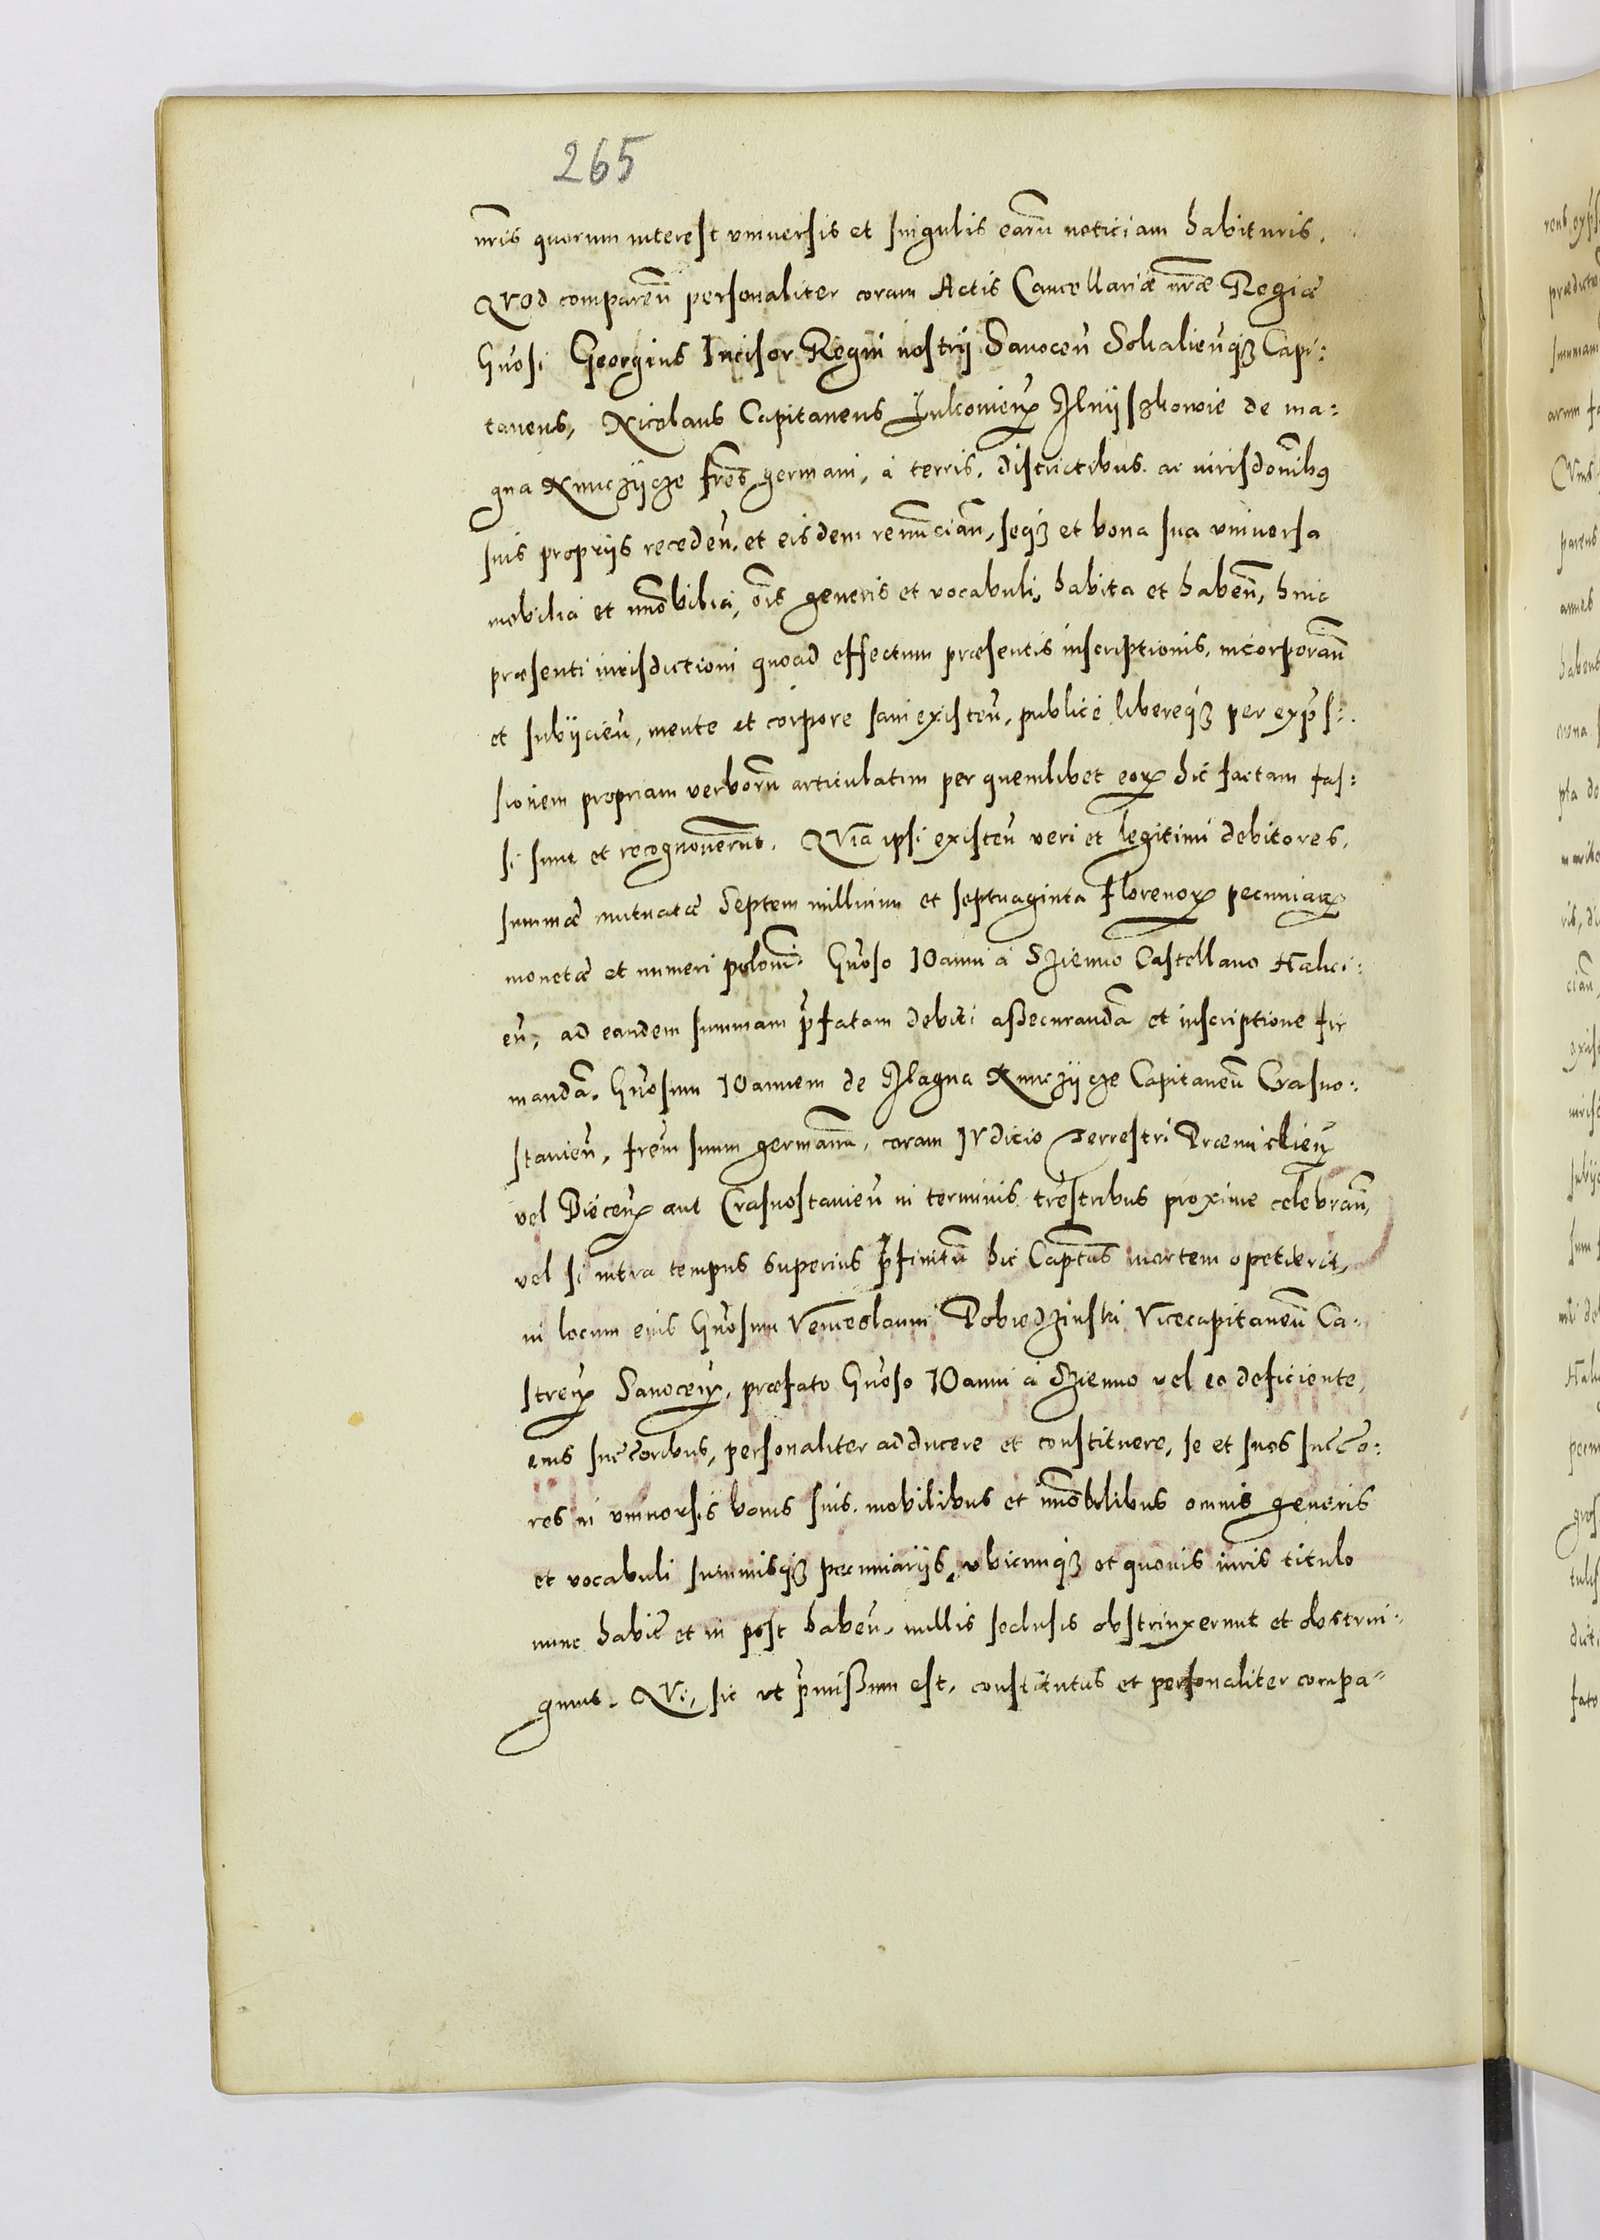 265
nr̃is quorum interest vniuersis et singulis earũ noticiam habituris.
QVOD compareñ personaliter coram Actis Cancellariæ nr̃æ Regiæ
Gñosi Georgius Incisor Regni nostrij Sanoceñ Sokalieñq3 Capi:
taneus, Nicolaus Capitaneus de ma:
gna Kunczijcze fr̃es germani, à terris, districtibus ac iurisdoñibus
suis proprijs recedeñ, et eisdem renũciañ, seq3 et bona sua vniuersa
mobilia et imõbilia, õis generis et vocabuli, habita et habeñ, huic
præsenti iurisdictioni quoad effectum præsentis inscriptionis, incorporañ
et subijcieñ, mente et corpore sani existeñ, publicè libereq3 per exp̃s:
sionem propriam verborũ articulatim per quemlibet eoꝝ hic factam fas:
si sunt et recognouerũt. QVIA ipsi existeñ veri et legitimi debitores,
summæ mutuatæ Septem millium et septuaginta florenoꝝ pecuniaꝝ
monetæ et numeri poloni. Gñoso IOanni à Szienno Castellano Halici:
eñ, ad eandem summam p̃fatam debiti assecurandã et inscriptione fir
mandã, Gñosum IOannem de Magna Kunczijcze Capitaneũ Crasno:
stauieñ, frẽm suum germanũ, coram IVdicio Terrestri Præmislieñ
vel aut Crasnostauieñ in terminis tr̃estribus proxime celebrañ,
vel si intra tempus superius p̃finitũ hic Captũs mortem opetierit,
in locum eius Gñosum Venceslaum Dobiedzinski Vicecapitaneũ Ca:
streñ Sanoceñ, præfato Gñoso IOanni à Szienno vel eo deficiente,
eius succ̃oribus, personaliter adducere et constituere, se et suos succ̃o:
res in vniuersis bonis suis, mobilibus et imõbilibus omnis generis
et vocabuli summisq3 pecuniarijs, vbicunq3 et quouis iuris titulo
nunc habit̃ et in post habeñ, nullis seclusis obstrinxerunt et obstrin:
gunt. QVI, sic vt p̃missum est, constitutus et personaliter compa: